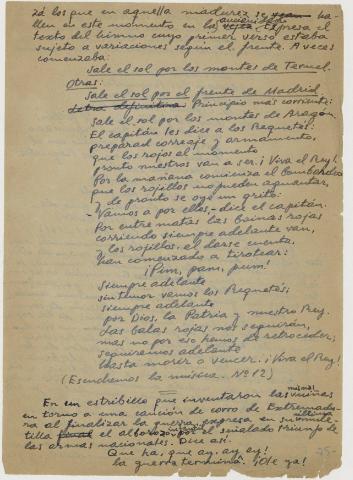 zá los que en aquella madurez se vean ha-
llen en este momento en la ancianidad. Expresa el
texto del himno cuyo primer verso estaba
sujeto a variaciones según el frente. A veces
comenzaba:
Sale el sol por los montes de Teruel.
Otras:
Sale el sol por el frente de Madrid
Letra definitiva: Principio más corriente:
Sale el sol por los montes de Aragón.
El capitán les dice a los Requetés:
preparad correaje y armamento,
que los rojos al momento
pronto nuestros van a ser. ¡Viva el Rey!
Por la mañana comienza el bombardeo
que los rojillos no pueden aguantar,
y de pronto se oyó un grito:
- Vamos a por ellos,- dice el capitán.
Por entre matas las boinas rojas
corriendo siempre adelante van,
y los rojillos, al darse cuenta,
han comenzado a tirotear:
¡Pim, pam, pum!
Siempre adelante
sin temor vamos los Requetés;
siempre adelante
por Dios, la Patria y nuestro Rey.
Las balas rojas nos seguirán,
mas no por eso hemos de retroceder;
seguiremos adelante
hasta morir o vencer. ¡Viva el Rey!
(Escuchemos la música. Nº 12)
En un estribillo que inventaron las mismas niñas
en torno a una canción de corro de Extremadu-
ra al finalizar la guerra, expresa en su
tilla final el alborozo por el señalado triunfo de
las armas nacionales. Dice así:
Que ha, que ay, ay, ay!
la guerra termina. ¡Olé ya!
75-